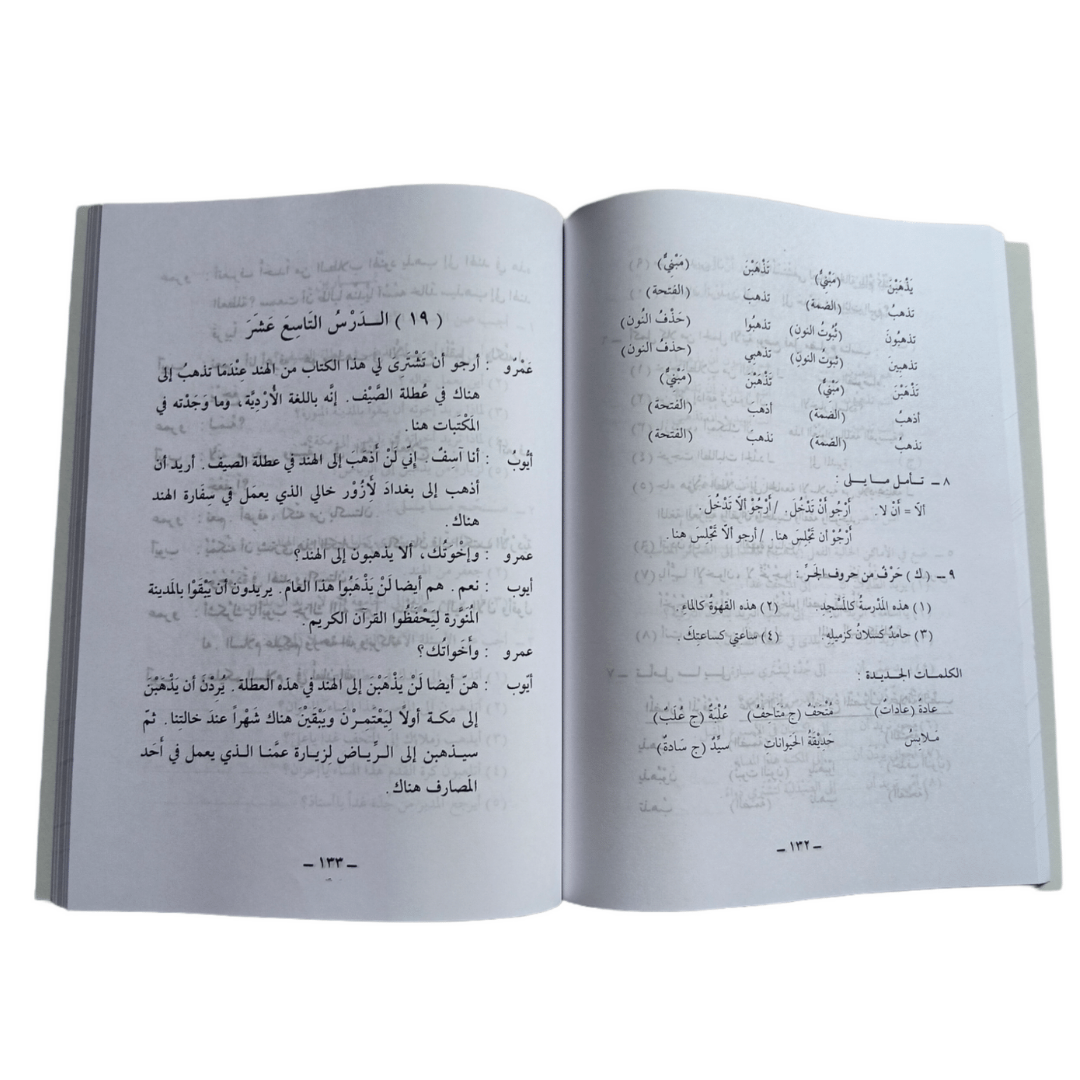 يَذْهَبْنَ (مَبْنِيٌّ) تَذْهَبْنَ (مَبْنِيٌّ)
تذهبُ (الضمة) تذهبَ (الفتحة)
تذهبُونَ (ثُبُوتُ النونِ) تذهبُوا (حَذْفُ النُون)
تذهبينَ (ثبوتُ النونِ) تذهبي (حذفُ النون)
تَذْهَبْنَ (مَبْنِيٌّ) تَذْهَبْنَ (مَبْنِيٌّ)
أذهبُ (الضمة) أذهبَ (الفتحة)
نذهبُ (الضمة) نذهبَ (الفتحة)
٨ ـ تأمل ما يلى :
ألاَ = أَنْ لا. أَرْجُو أَنْ تَدْخُلَ. / أَرْجُوْ أَلّا تَدْخُلَ.
أَرْجُوْ أن تَجْلِسَ هنا. / أرجو ألاّ تَجْلِسَ هنا.
٩ ـ (ك) حَرْفٌ من حروفِ الجَرِّ :
(١) هذه المَدْرسةُ كالمَسْجِدِ (٢) هذه القهوةُ كالماءِ.
(٣) حامدٌ كَسْلانُ كَزَمِيلِهِ (٤) ساعتي كساعتِكَ.
الكلمات الجديدة :
عادةٌ (عاداتٌ) مُتْحَفٌ (ج مَتَاحِفُ) عُلْبَةٌ (ج عُلَبٌ)
مَلابسُ حَدِيْقَةُ الحَيَوانات سيِّدٌ (ج سَادةٌ)
ـ ١٣٢ ـ
( ١٩ ) الـدَرْسُ التَاسِعَ عَشَرَ
عَمْرٌو : أرجو أن تَشْتَرِىَ لي هذا الكتابَ من الهند عِنْدَمَا تذهبُ إلى
هناك في عُطلة الصَيْف. إنَّه باللغة الأُرْدِيَّة، وما وَجَدْته في
المَكْتَبات هنا.
أيُوبُ : أنا آسِفٌ. إنِّي لَنْ أَذْهَبَ إلى الهند في عطلة الصيف. أريد أن
أذهب إلى بغدادَ لأَزُوْرَ خالي الذي يعمَل في سِفَارة الهند
هناك.
عمرو : وإخْوتُكَ، ألا يذهبون إلى الهند؟
أيوب : نعم. هم أيضا لَنْ يَذْهَبُوا هذا العَام. يريدون أن يَبْقَوا بالمدينة
المُنَوَّرة لِيَحْفَظُوا القرآن الكريم.
عمرو : وأَخَواتُك؟
أيوب : هنّ أيضا لَنْ يَذْهَبْنَ إلى الهند في هذه العطلة. يُرِدْنَ أن يَذْهَبْنَ
إلى مكة أولًا لِيَعْتَمِرْنَ ويَبْقَيْنَ هناك شَهْراً عند خالتِنا. ثمّ
سيذهبن إلى الرِّياض لِزيارة عمِّنا الذي يعمل في أَحَد
المصارف هناك.
ـ ١٣٣ ـ